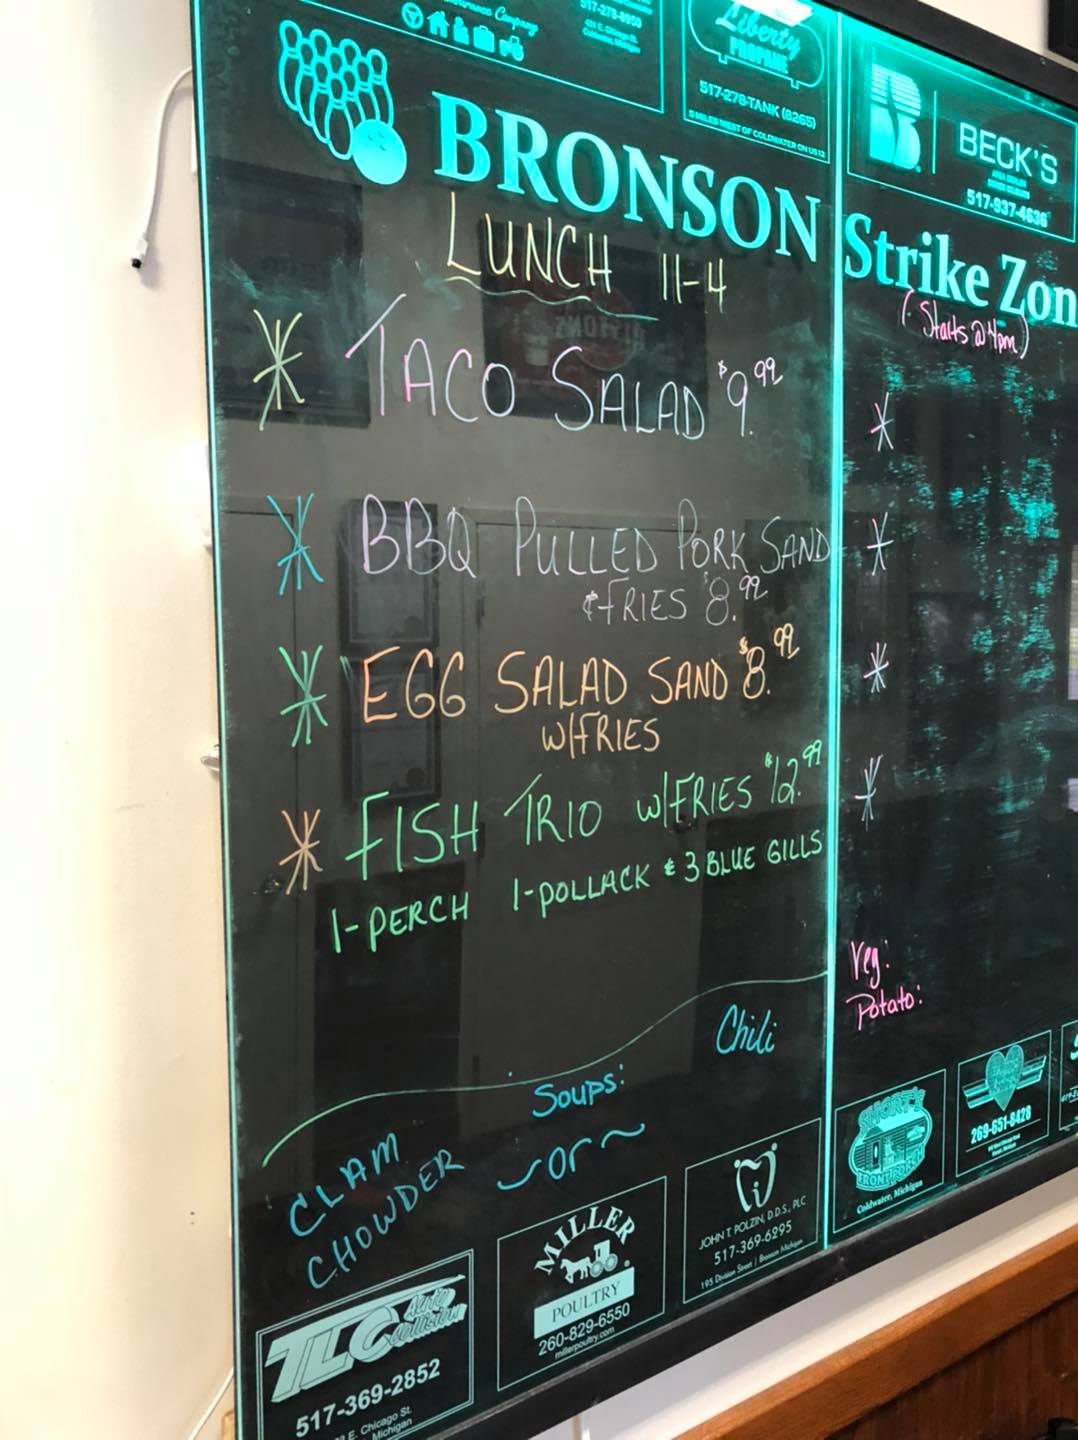 Insurance Company
517-278-8950
431 E. Chicago St.
Coldwater, Michigan
Liberty
PROPANE
517-278-TANK (8265)
5 MILES WEST OF COLDWATER ON US 12
BECK'S
517-937-4636
BRONSON Strike Zon
LUNCH 11-4
(Starts @ 4pm)
TACO SALAD $9.99
BBQ PULLED PORK SAND
& FRIES $8.99
EGG SALAD SAND $8.99
W/FRIES
FISH TRIO W/FRIES $12.99
1-PERCH 1-POLLACK & 3 BLUE GILLS
Veg:
Potato:
Soups: Chili
~or~
CLAM
CHOWDER
TLC Auto
Collision
517-369-2852
E. Chicago St.
Michigan
MILLER
POULTRY
260-829-6550
millerpoultry.com
JOHN T. POLZIN, D.D.S., PLC
517-369-6295
195 Division Street | Bronson Michigan
SHORT'S
FRONT PORCH
Coldwater, Michigan
269-651-8428